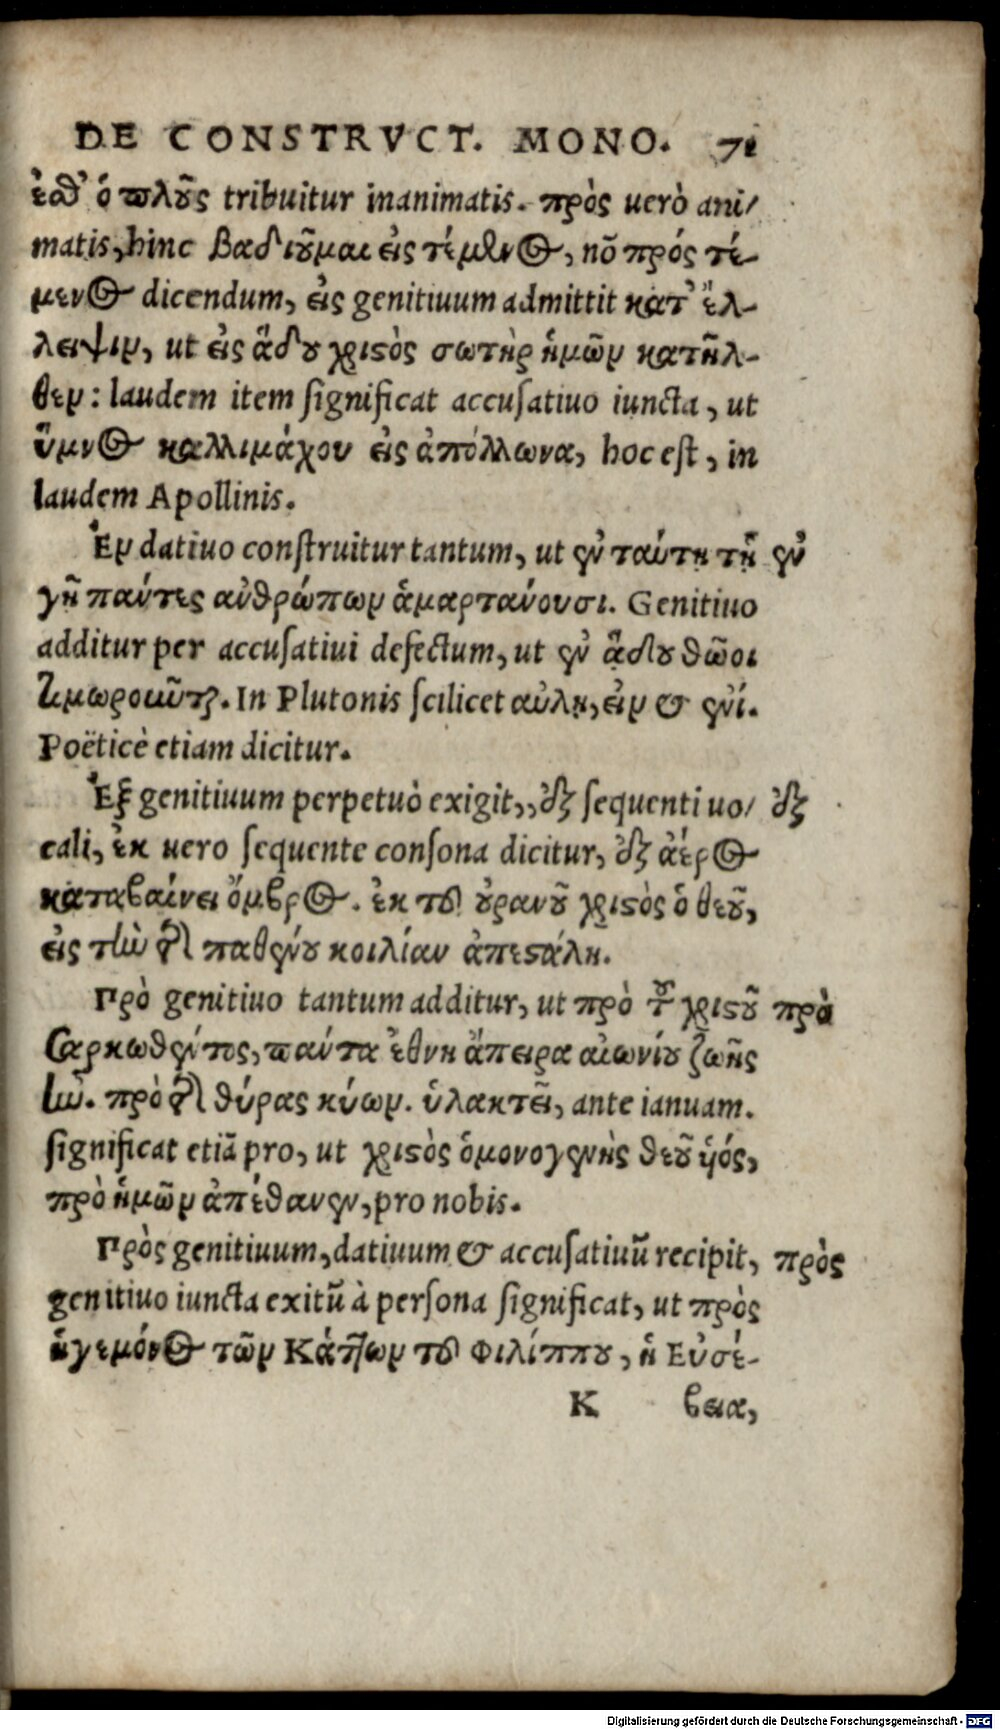 DE CONSTRVCT. MONO. 71
ἐσθ' ὁ πλοῦς tribuitur inanimatis. πρὸς uerò ani/
matis, hinc βαδιοῦμαι εἰς τέμενος, nō πρός τέ-
μενος dicendum, εἰς genitiuum admittit κατ' ἔλ-
λειψιν, ut εἰς ἅδου χριστὸς σωτὴρ ἡμῶν κατῆλ-
θεν: laudem item significat accusatiuo iuncta, ut
ὕμνος καλλιμάχου εἰς ἀπόλλωνα, hoc est, in
laudem Apollinis.
Ἐν datiuo construitur tantum, ut ἐν ταύτῃ τῇ ἐν
γῇ πάντες ἀνθρώπων ἁμαρτάνουσι. Genitiuo
additur per accusatiui defectum, ut ἐν ᾅδου θῶοι
τιμωροιῦται. In Plutonis scilicet αὐλῇ, εἰν & ἐνί.
Poëticè etiam dicitur.
Ἐξ genitiuum perpetuò exigit,, ἐξ sequenti uo/ ἐξ
cali, ἐκ uero sequente consona dicitur, ἐξ ἀέρος
καταβαίνει ὄμβρος. ἐκ τοῦ οὐρανοῦ χριστὸς ὁ θεοῦ,
εἰς τὴν τῆς παθένου κοιλίαν ἀπεστάλη.
Πρὸ genitiuo tantum additur, ut πρὸ τοῦ χριστοῦ πρὸ
σαρκωθέντος, πάντα ἔθνη ἄπειρα αἰωνίου ζωῆς
ἦν. πρὸ τῆς θύρας κύων. ὑλακτεῖ, ante ianuam.
significat etiā pro, ut χριστὸς ὁμονογενὴς θεοῦ ὑός,
πρὸ ἡμῶν ἀπέθανεν, pro nobis.
Πρὸς genitiuum, datiuum & accusatiuū recipit, πρὸς
genitiuo iuncta exitū à persona significat, ut πρὸς
ἡγεμόνος τῶν Κάττων τοῦ Φιλίππου, ἡ Εὐσέ-
K βεια,
Digitalisierung gefördert durch die Deutsche Forschungsgemeinschaft - DFG